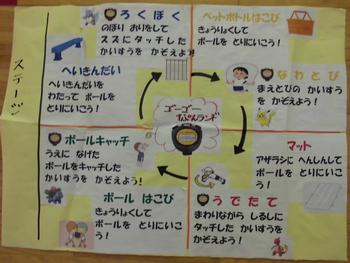 ステージ
ろくぼく
のぼり おりをして
スズに タッチした
かいすうを かぞえよう!
へいきんだい
へいきんだいを
わたって ボールを
とりにいこう!
ペットボトルはこび
きょうりょくして
ボールを とりにいこう!
なわとび
まえとびの かいすうを
かぞえよう!
ゴーゴー
ランド
ボールキャッチ
うえに なげた
ボールをキャッチした
かいすうを かぞえよう!
ボール はこび
きょうりょくして
ボールを とりにいこう!
マット
アザラシに へんしんして
ボールを とりにいこう!
うでたて
まわりながら しるしに
タッチした かいすうを
かぞえよう!